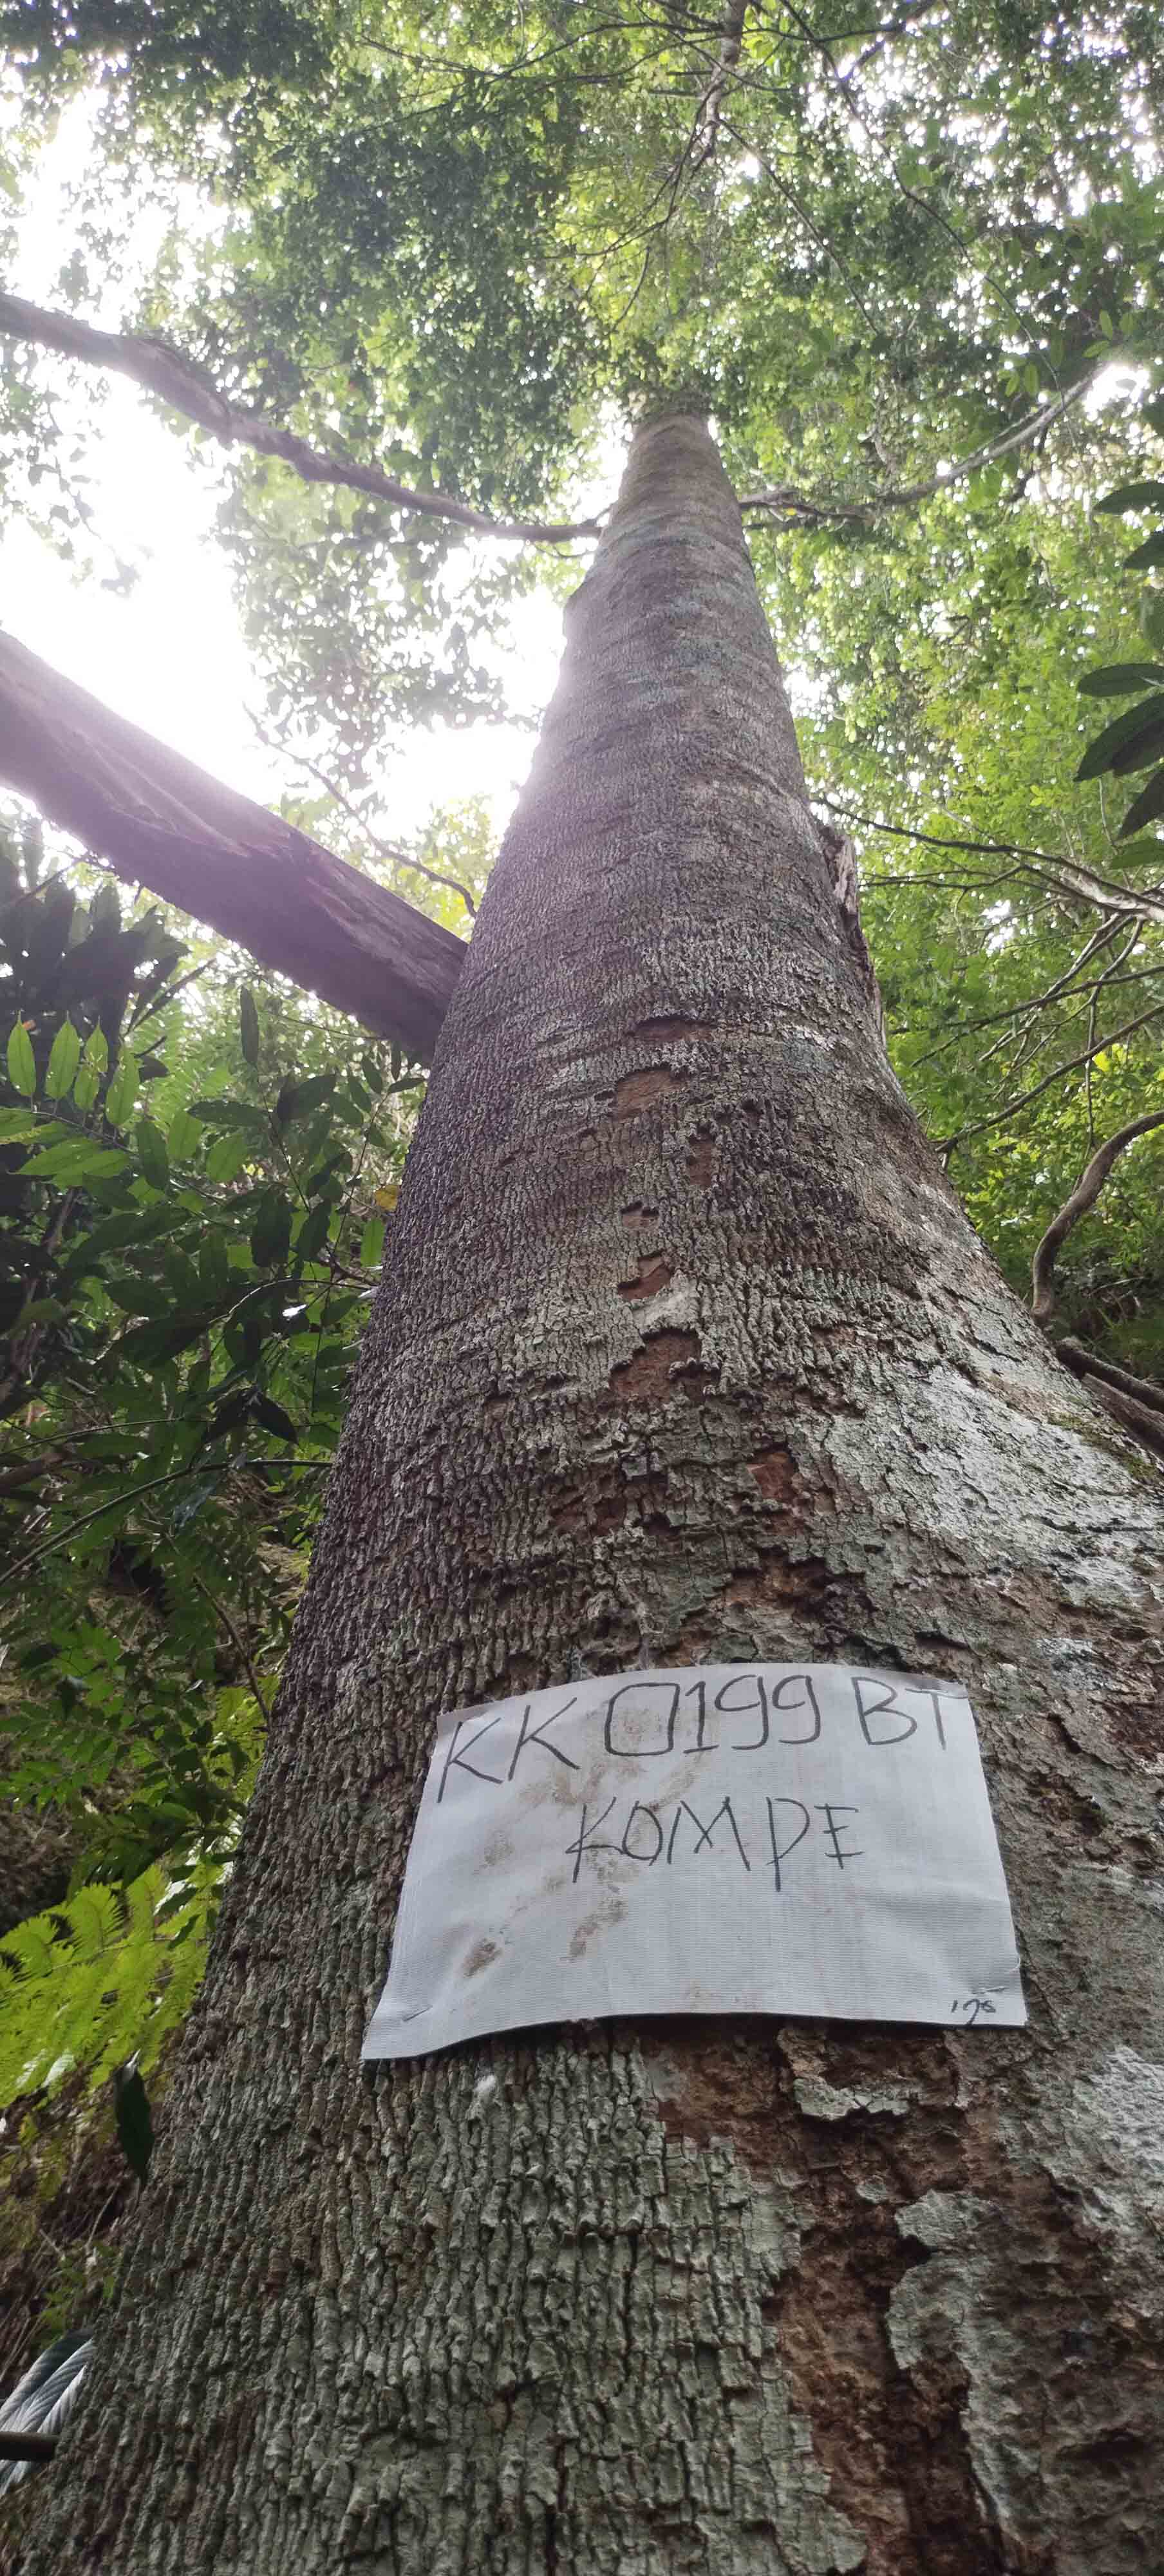 KK 0199 BT
KOMPE